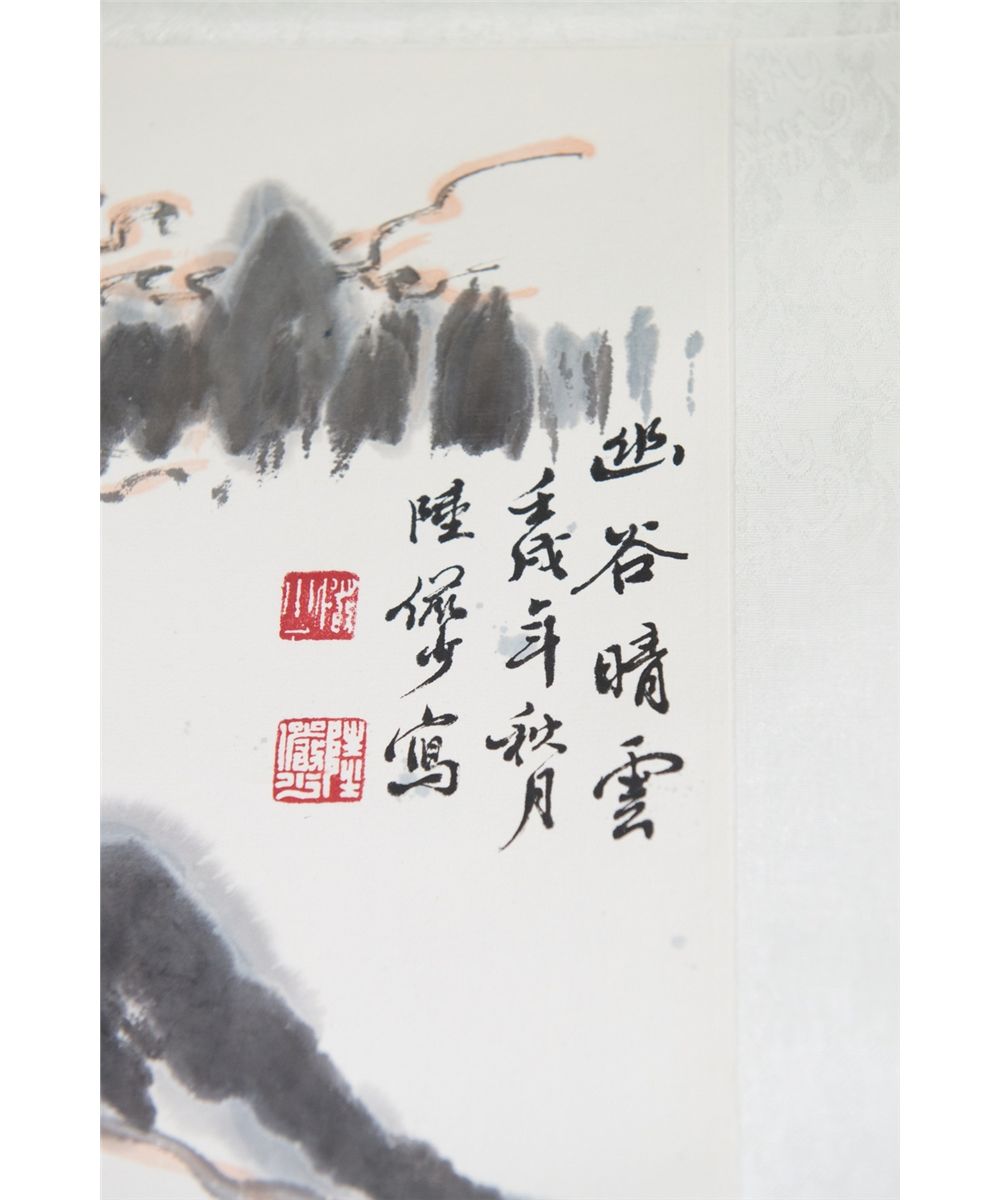 幽谷晴雲
壬戌年秋月
陸儼少寫
陸儼少